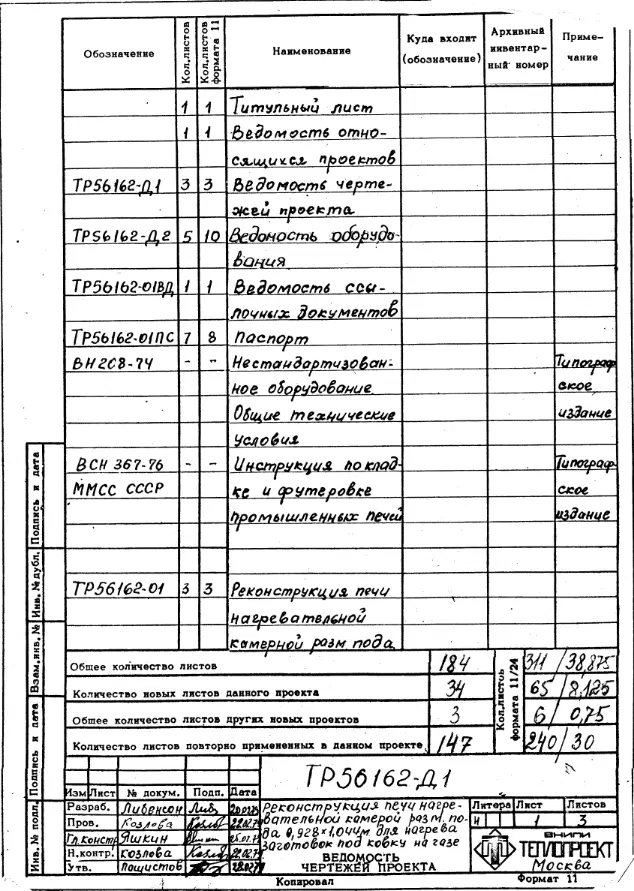 Обозначение Кол.листов Кол.листов формата 11 Наименование Куда входит (обозначение) Архивный инвентар-ный номер Приме-чание
1 1 Титульный лист
1 1 Ведомость отно-
сящихся проектов
ТР56162-Д1 3 3 Ведомость черте-
жей проекта
ТР56162-Д2 5 10 Ведомость оборудо-
вания
ТР56162-01ВД 1 1 Ведомость ссы-
лочных документов
ТР56162-01ПС 7 8 Паспорт
ВН208-74 - - Нестандартизован- Типограф
ное оборудование. ское
Общие технические издание
условия
ВСН 367-76 - - Инструкция по клад- Типограф-
ММСС СССР ке и футеровке ское
промышленных печей издание
ТР56162-01 3 3 Реконструкция печи
нагревательной
камерной разм пода
Общее количество листов 184 Кол.листов формата 11/24 311 / 38,875
Количество новых листов данного проекта 34 65 / 8,125
Общее количество листов других новых проектов 3 6 / 0,75
Количество листов повторно примененных в данном проекте 147 240 / 30
Взам.инв. № Инв. № дубл. Подпись и дата
Инв. № подл. Подпись и дата
ТР56162-Д1
Изм Лист № докум. Подп. Дата
Разраб. Ливенсон
Пров. Козлова
Гл.констр Яшкин
Н.контр. Козлова
Утв.
Реконструкция печи нагре-
вательной камерой разм. по-
да 0,928х1,044м для нагрева
заготовок под ковку на газе
ВЕДОМОСТЬ
ЧЕРТЕЖЕЙ ПРОЕКТА
Литера Лист Листов
И 1 3
ВНИПИ
ТЕПЛОПРОЕКТ
Москва
Копировал Формат 11